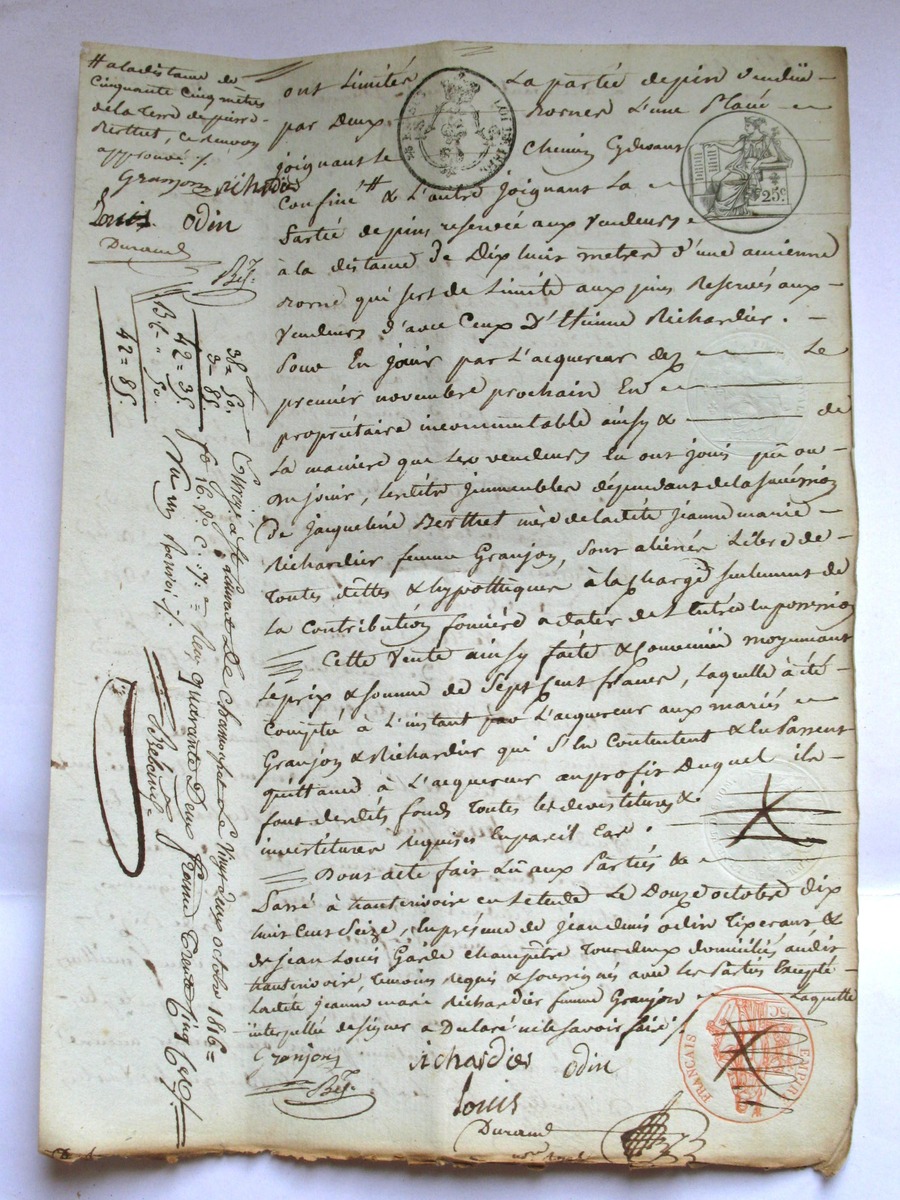 # a la distance de
Cinquante Cinq mètres
de la Terre de pierre
Berthet, ce renvoy
approuvé /.
Granjon Richardier
Louis Odin
Durand
ont Limités La partie de pin vendüe
par Deux Bornes L'une Placé
joignant le Chemin Cydevant
Confiné # & L'autre joignant La
Partie de pins reservée aux Vendeurs
à la distance De Dix huit metres d'une ancienne
Borne qui sert de Limite aux pins Reservés aux
Vendeurs d'avec Ceux D'Etienne Richardier.
Pour En jouir par L'acquereur dez Le
premier novembre prochain En
propriétaire incommutable ainsy & de
La maniere que Les vendeurs En ont joui pû ou
dû jouir, Lesdits Immeubles dépendant de la succession
De jacqueline Berthet mère de ladite jeanne marie
Richardier femme Granjon, Sont aliénés Libre de
Toutes dettes & hypothèques à la charge seulement de
La Contribution fonciere a dater de L'entrée en possession
Cette Vente ainsy faite & Convenüe moyennant
Le prix & somme de Sept Cent francs, Laquelle a été
Comptée à L'instant par L'acquereur aux mariés
Granjon & Richardier qui S'en Contentent & En Passent
quittance à L'acquereur au profit Duquel ils
font desdits fonds Toutes les devestitures &
investitures requises En pareil Cas.
Dont acte fait Lû aux Parties &
Passé à hauterivoire en L'etude Le Douze octobre dix
huit Cent Seize, En présence de jean denis odin Tixerant &
de jean Louis Garde Champêtre Tous deux domiciliés audit
hauterivoire, Temoins requis & soussignés avec les Parties Excepté
Ladite jeanne marie Richardier femme Granjon Laquelle
interpellée de signer a Declaré ne le savoir faire /.
Granjon
Richardier Odin
Louis
Durand
38= 50.
3= 85.
42= 35.
50.
42= 85.
Enregé à St Laurent De Chamousset Le Vingt deux octobre 1816=
fo 16. Vo C. 7. = Reçu quarante Deux francs Trente Cinq Cent.
Vu un Renvoi /.
LOI DE
25 c.
EMPIRE
FRANÇAIS